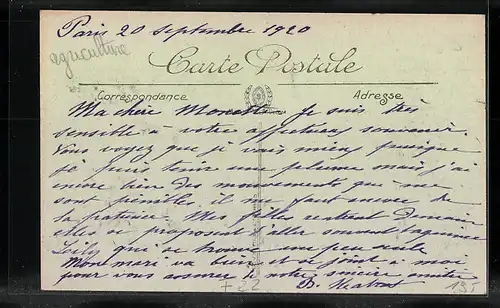 Paris 20 septembre 1920
agriculture
Carte Postale
Correspondance
Adresse
Ma chère je suis très
sensible à votre affectueux souvenir.
Vous voyez que je vais mieux puisque
je puis tenir une plume mais j'ai
encore bien des mouvements que me
sont pénibles il me faut encore de
la patience. Mes filles rentrent demain
elles se proposent d'aller souvent taquiner
qui se trouve une peu seule
Mon mari va bien et se joint à moi
pour vous assurer de notre sincère amitié
+22
135